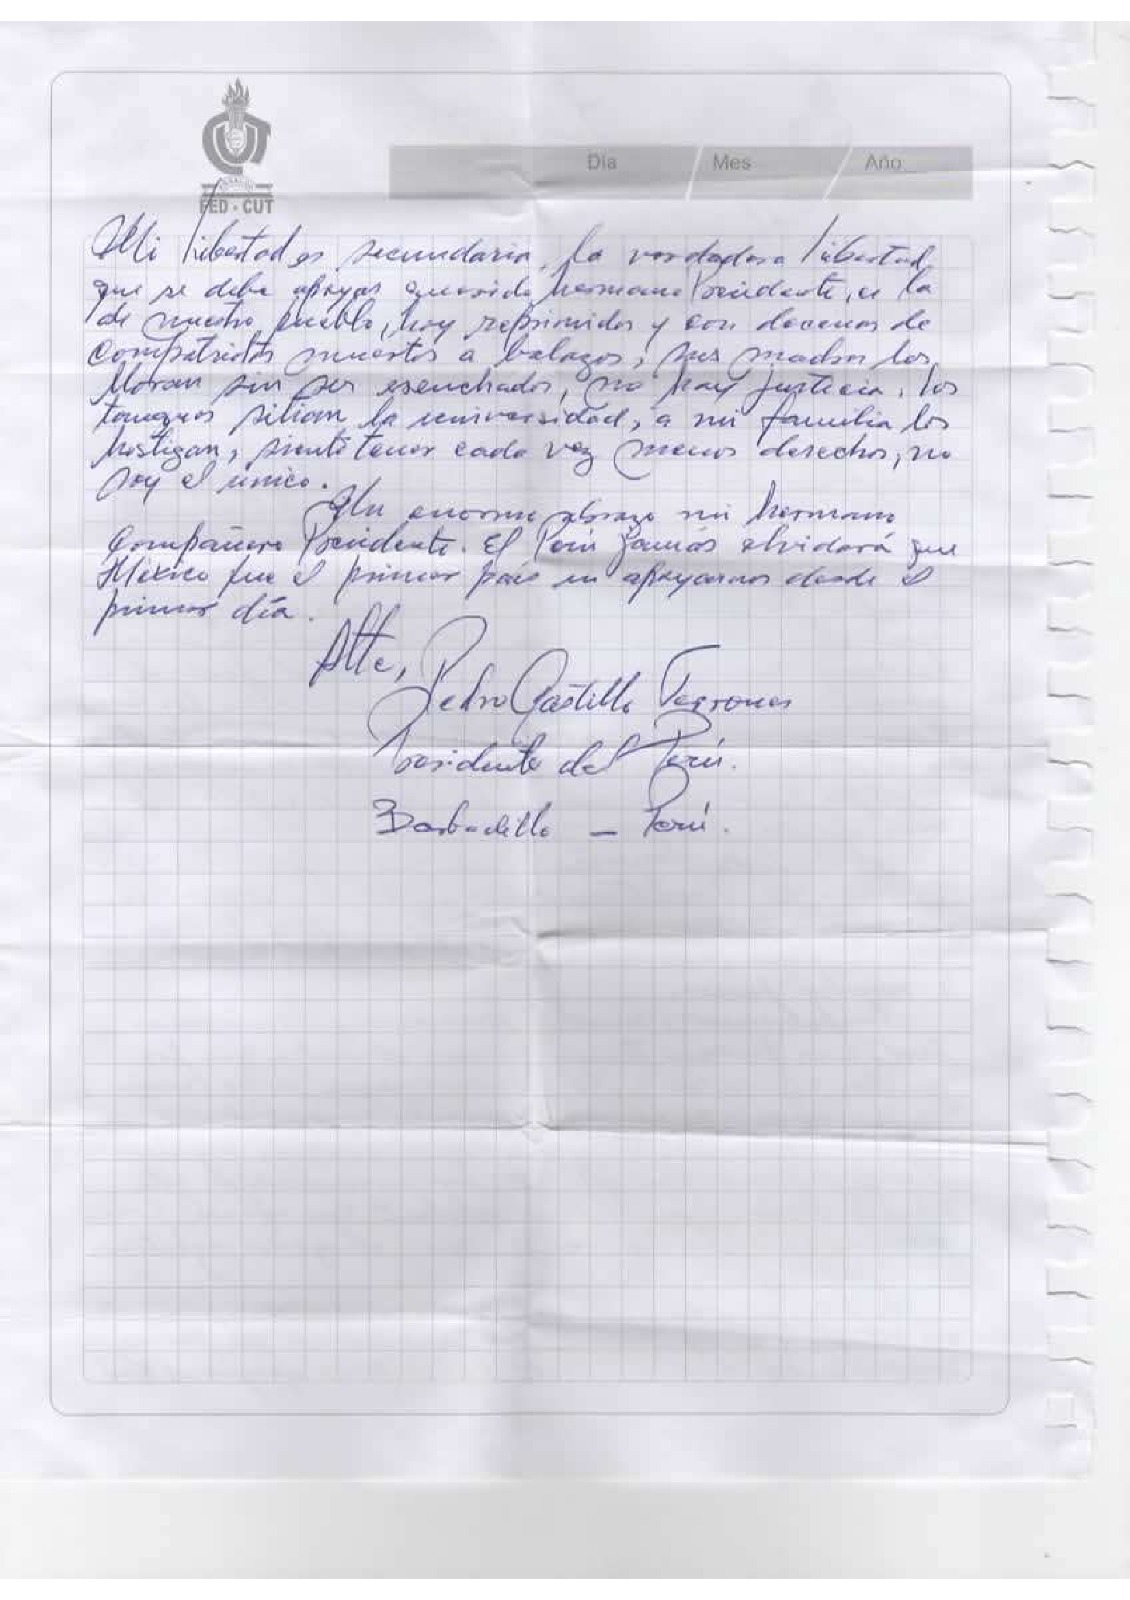 FED - CUT
Día / Mes / Año
Mi libertad es secundaria, la verdadera libertad
que se debe apoyar querido hermano Presidente, es la
de nuestro pueblo, hoy reprimidos y con docenas de
compatriotas muertos a balazos, sus madres los
lloran sin ser escuchados, no hay justicia, los
tanques sitian la universidad, a mi familia los
hostigan, siento tener cada vez menos derechos, no
soy el único.
Un enorme abrazo mi hermano
Compañero Presidente. El Perú jamás olvidará que
México fue el primer país en apoyarnos desde el
primer día.
Atte,
Pedro Castillo Terrones
Presidente del Perú.
Barbadillo - Perú.